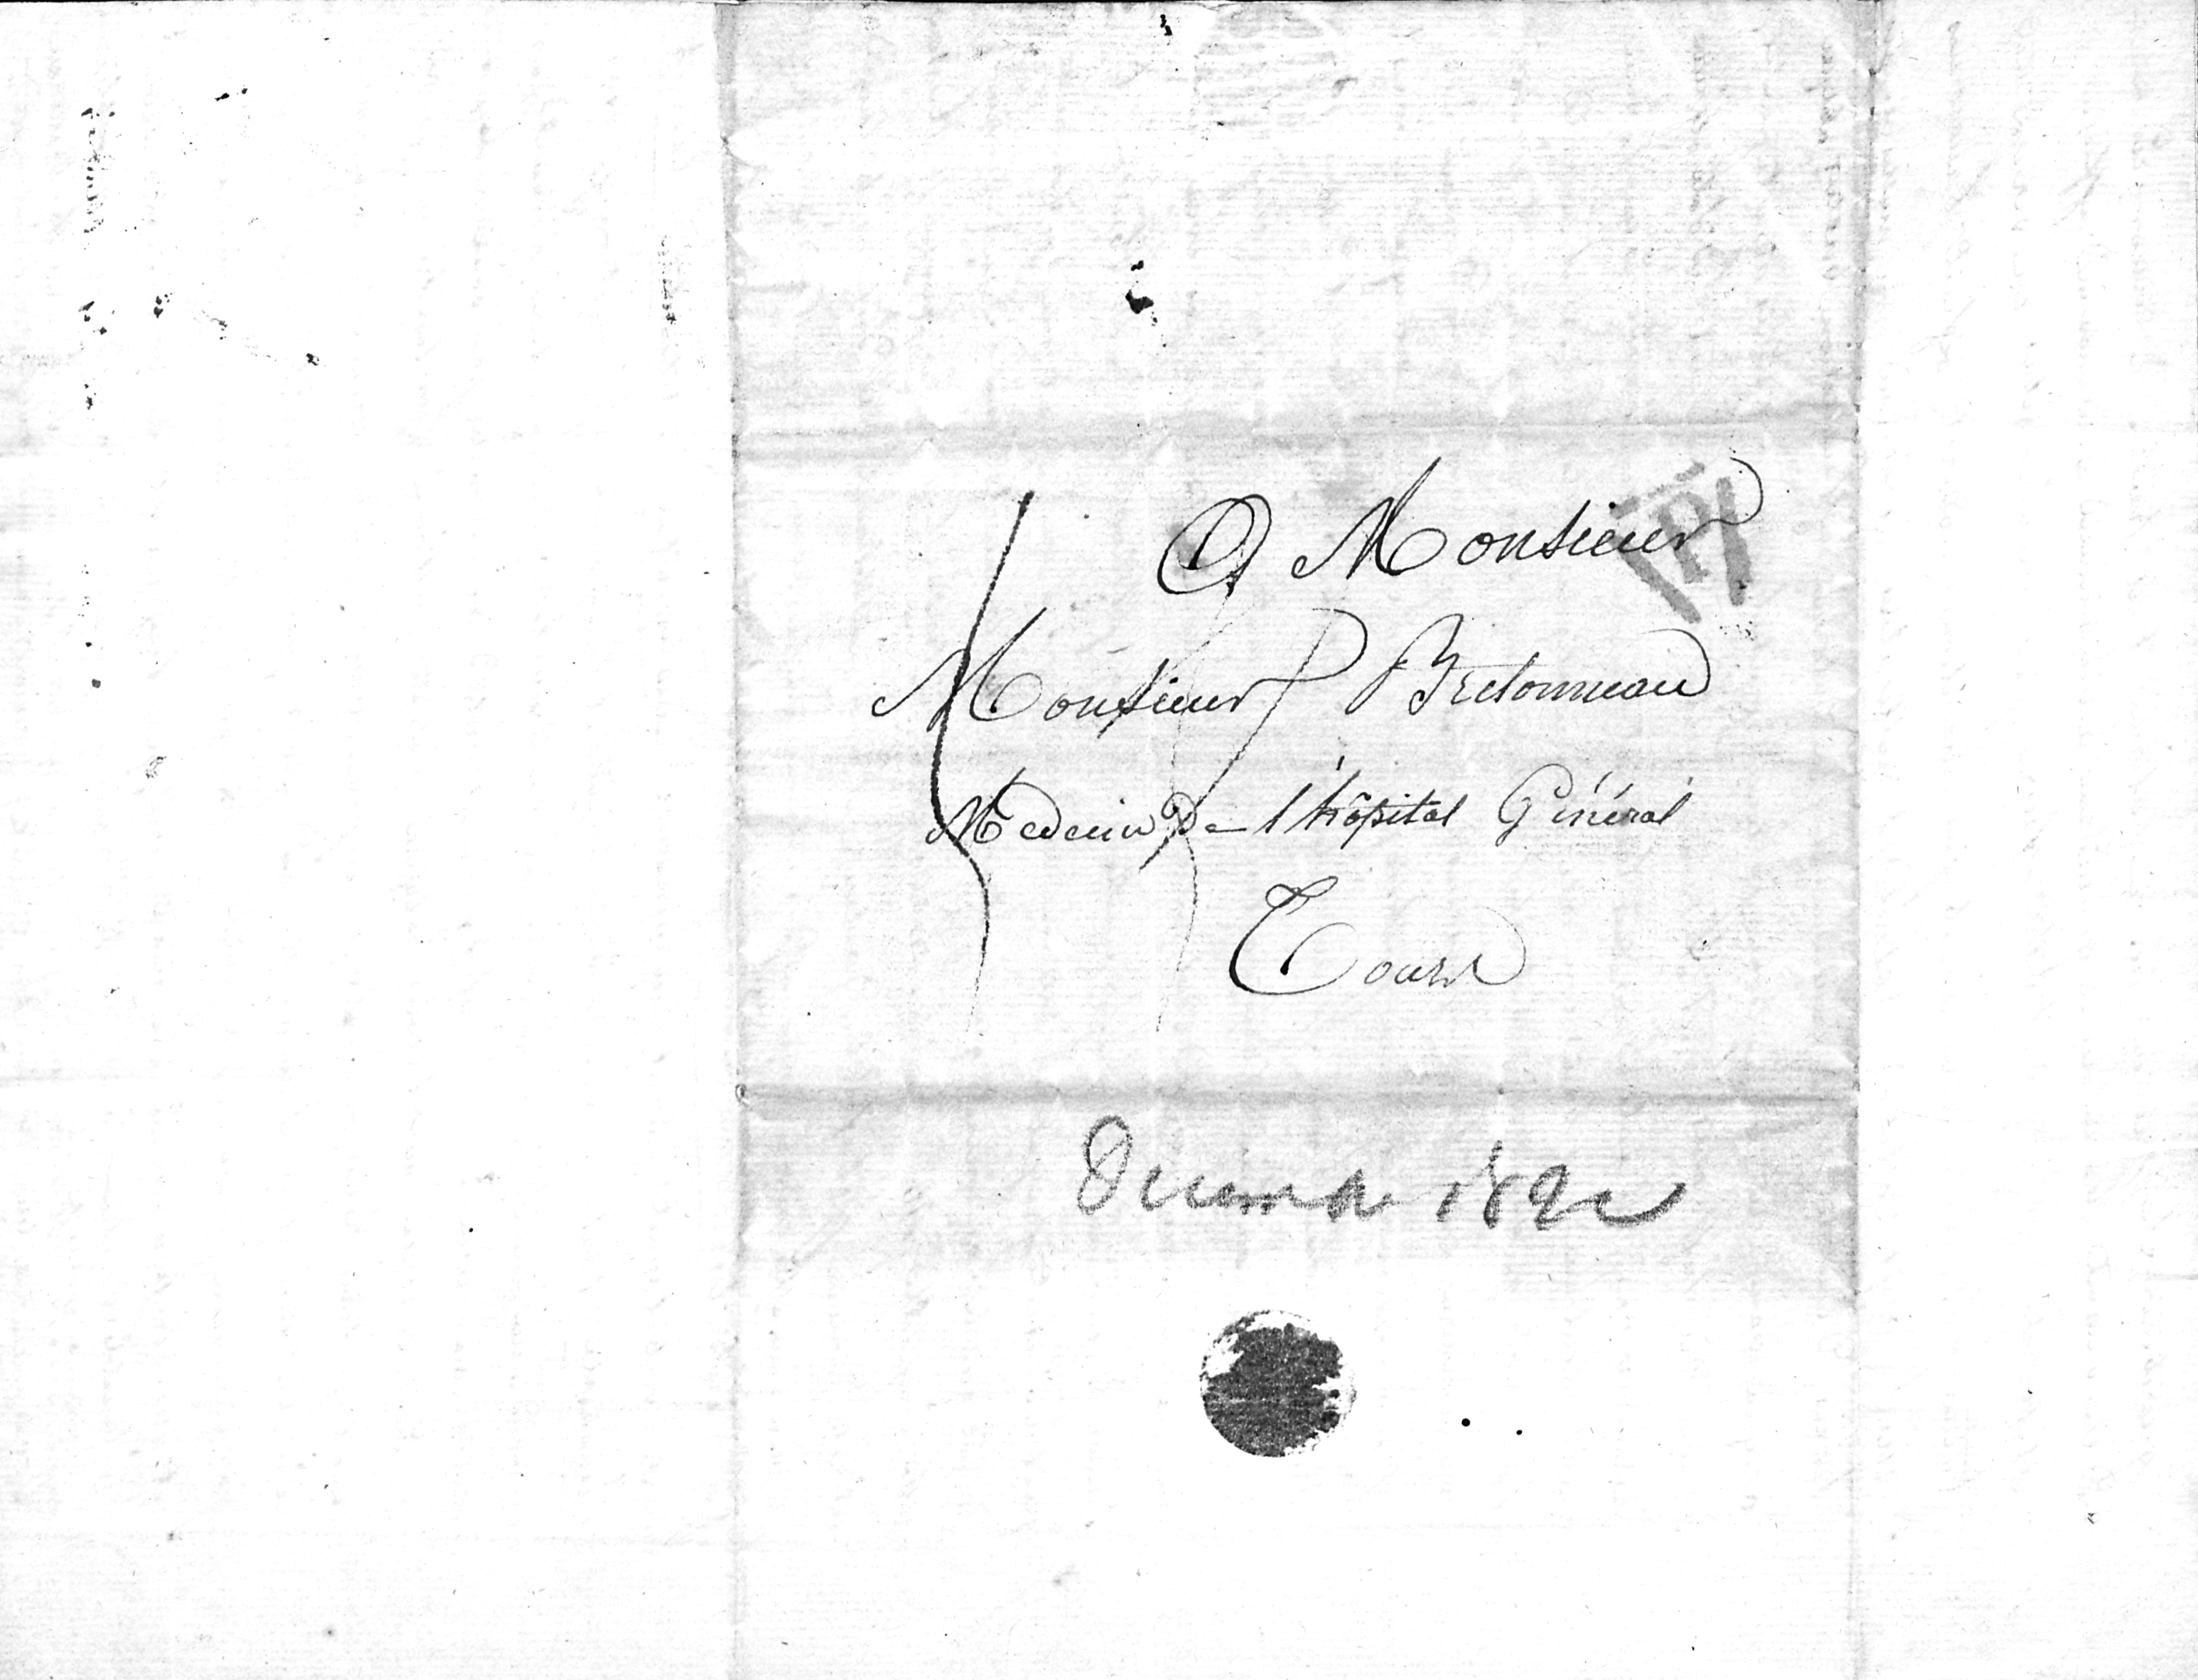 A Monsieur
P
Monsieur Bretonneau
Medecin De l'hôpital Général
Tours
Decembre 1822